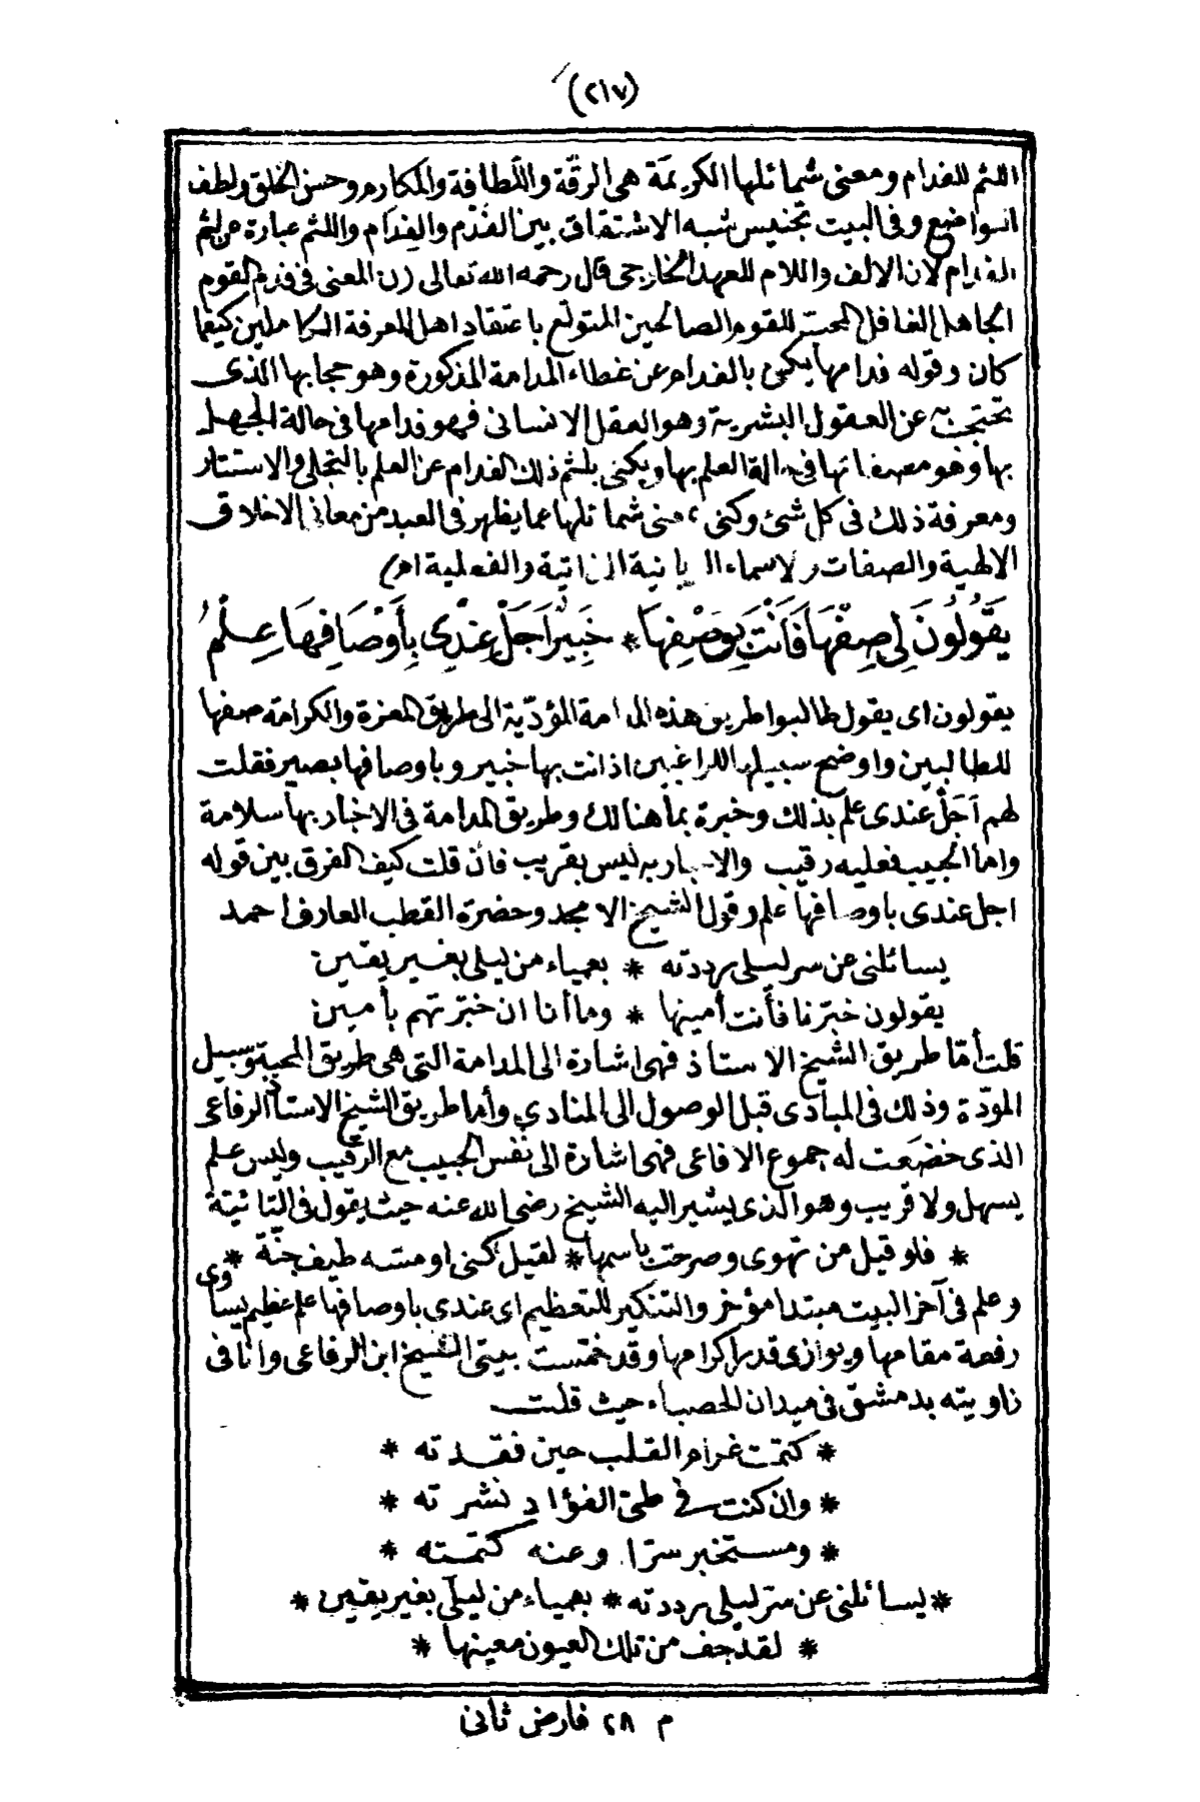 (٢١٧)
اللثم للفدام ومعنى شمائلها الكريمة هى الرقّة واللّطافة والمكارم وحسن الخلق ولطف
التواضع وفى البيت تجنيس شبه الاشتقاق بين الفَدْم والفِدَام واللثم عبارة عن لثم
الفدام لان الالف واللام للعهد الخارجى قال رحمه الله تعالى (ن المعنى فى فدم القوم
الجاهل الغافل المحب للقوم الصالحين المتولع باعتقاد اهل المعرفة الكاملين كيفما
كان وقوله فدامها يكنى بالفدام عن غطاء المدامة المذكورة وهو حجابها الذى
تحتجب به عن العقول البشرية وهو العقل الانسانى فهو فدامها فى حالة الجهل
بها وهو مصفاتها فى حالة العلم بها ويكنى بلثم ذلك الفدام عن العلم بالتجلى والاستتار
ومعرفة ذلك فى كل شئ وكنى بمعنى شمائلها عما يظهر فى العبد من معانى الاخلاق
الالهية والصفات والاسماء الربانية الذاتية والفعلية اه)
يَقُولُونَ لِى صِفْهَا فَأَنْتَ بِوَصْفِهَا * خَبِيْرٌ اَجَلْ عِنْدِى بِأَوْصَافِهَا عِلْمُ
يقولون اى يقول طالبوا طريق هذه المدامة المؤدّية الى طريق العزة والكرامة صفها
للطالبين واوضح سبيلها للراغبين اذ انت بها خبير وباوصافها بصير فقلت
لهم أجَلْ عندى علم بذلك وخبرة بما هنالك وطريق المدامة فى الاخبار بها سلامة
واما الحبيب فعليه رقيب والاخبار به ليس بقريب فان قلت كيف الفرق بين قوله
اجل عندى باوصافها علم وقول الشيخ الامجد وحضرة القطب العارف احمد
يسائلنى عن سر ليلى رددته * بعمياء من ليلى بغير يقين
يقولون خبّرنا فأنت أمينها * وما أنا ان خبّرتهم بأمين
قلت أمّا طريق الشيخ الاستاذ فهى اشارة الى المدامة التى هى طريق المحبة وسبيل
المودّة وذلك فى المبادى قبل الوصول الى المنادى وأما طريق الشيخ الاستاذ الرفاعى
الذى خضَعت له جموع الافاعى فهى اشارة الى نفس الحبيب مع الرقيب وليس علم
يسهل ولا قريب وهو الذى يشير اليه الشيخ رضى الله عنه حيث يقول فى التائيّة
* فلو قيل من تهوى وصرحت باسمها * لقيل كنى او مسّه طيف جنّة *
وعلم فى آخر البيت مبتدا مؤخر والتنكير للتعظيم اى عندى باوصافها علم عظيم يساوى
رفعة مقامها ويوازى قدر اكرامها وقد خمّست بيتى الشيخ ابن الرفاعى وانا فى
زاويته بدمشق فى ميدان الحصباء حيث قلت
* كتمت غرام القلب حين فقدته *
* وان كنت فى طىّ الفؤاد نشرته *
* ومستخبر سرّا وعنه كتمته *
* يسائلنى عن سرّ ليلى رددته * بعمياء من ليلى بغير يقين *
* لقد جف من تلك العيون معينها *
م ٢٨ فارض ثانى